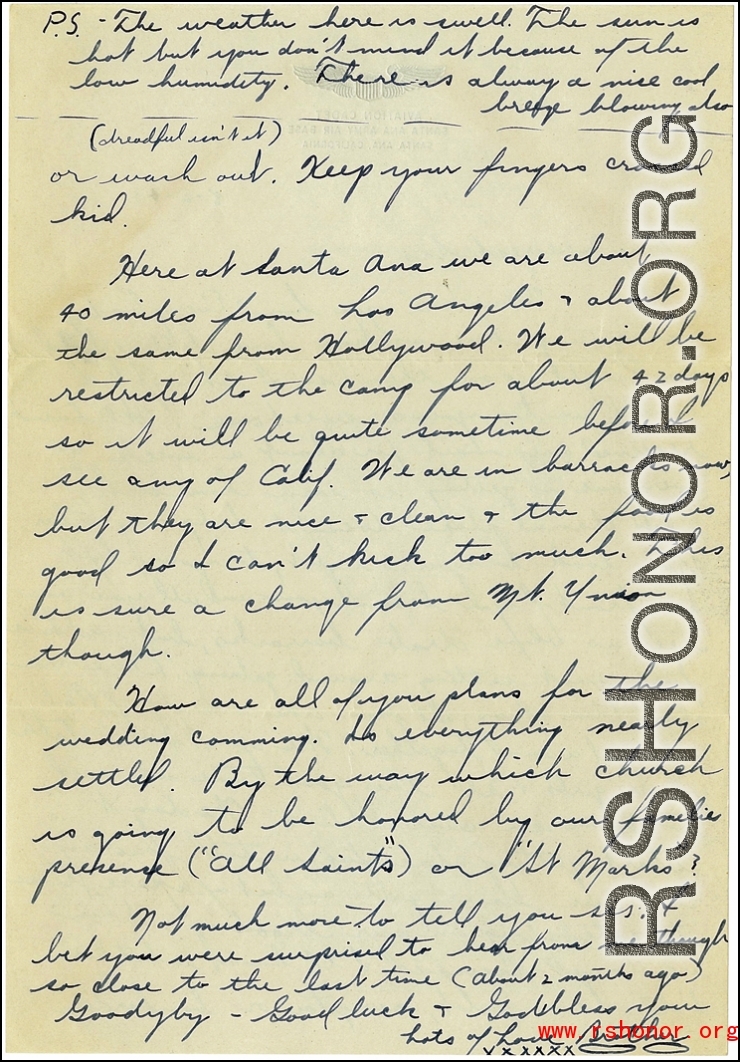 P.S. - The weather here is swell. The sun is
hot but you don't mind it because of the
low humidity. There is alway a nise cool
breeze blowing also
AVIATION CADET
SANTA ANA ARMY AIR BASE
SANTA ANA, CALIFORNIA
(dreadful isn't it)
or wash out. Keep your fingers crossed
kid.
Here at Santa Ana we are about
40 miles from Los Angeles & about
the same from Hollywood. We will be
restricted to the camp for about 42 days
so it will be quite sometime before I
see any of Calif. We are in barracks now,
but they are nice & clean & the food is
good so I can't kick too much. This
is sure a change from Mt. Union
though.
How are all of you plans for the
wedding comming. Is everything nearly
settled. By the way which church
is going to be honored by our families
presense ("All Saints") or "St Marks"?
Not much more to tell you sis. I
bet you were surprised to hear from me though
so close to the last time (about 2 months ago)
Goodyby - Good luck & God bless you
Lots of love Brother
xxxxxx
RSHONOR.ORG
www.rshonor.org